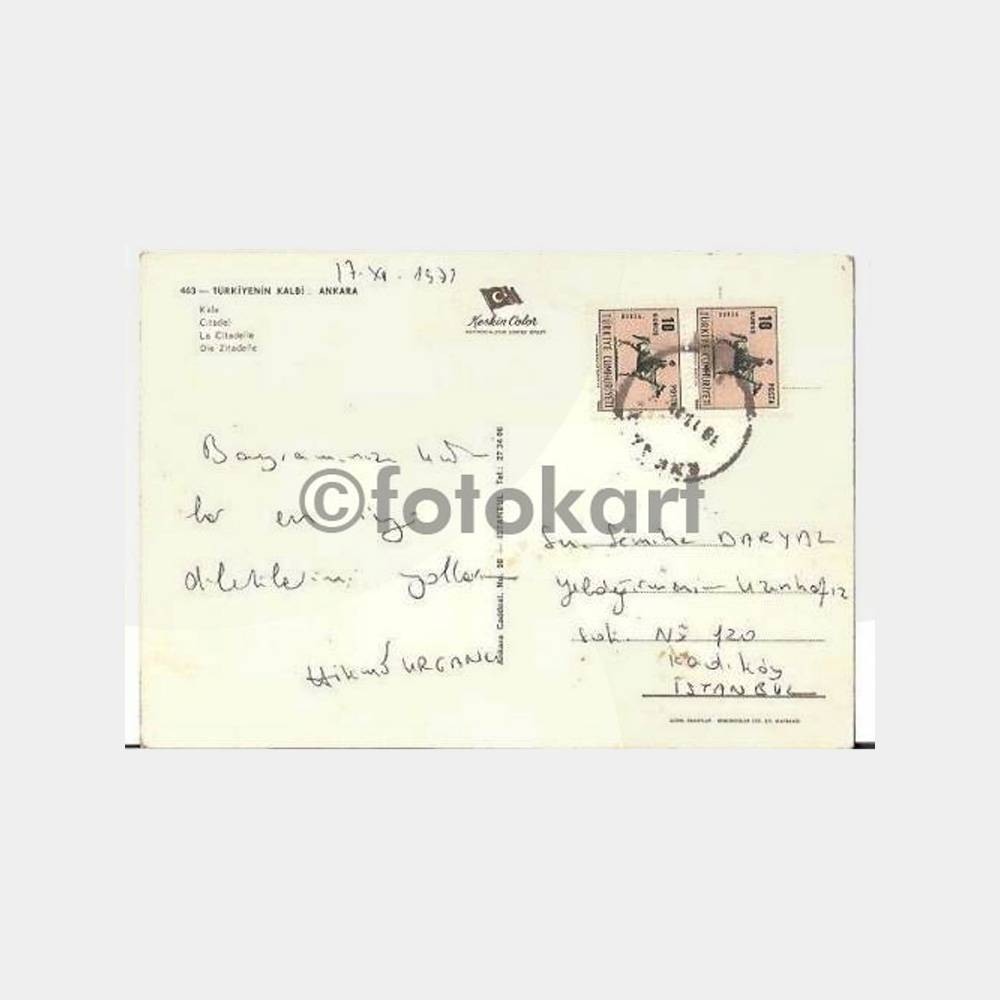 17-XI-1971
463 — TÜRKİYENİN KALBİ : ANKARA
Kale
Citadel
La Citadelle
Die Zitadelle
Keskin Color
10 KURUŞ TÜRKİYE CUMHURİYETİ POSTA
10 KURUŞ TÜRKİYE CUMHURİYETİ POSTA
Bayramınızı kut
lar en iyi
dileklerimi yollarım
Hikmet URGANCI
Ankara Caddesi, No. 98 — İSTANBUL Tel.: 27 34 06
©fotokart
Sn. Semiha DARYAL
Yeldeğirmeni Uzunhafız
Sok. No 120
Kadıköy
İSTANBUL